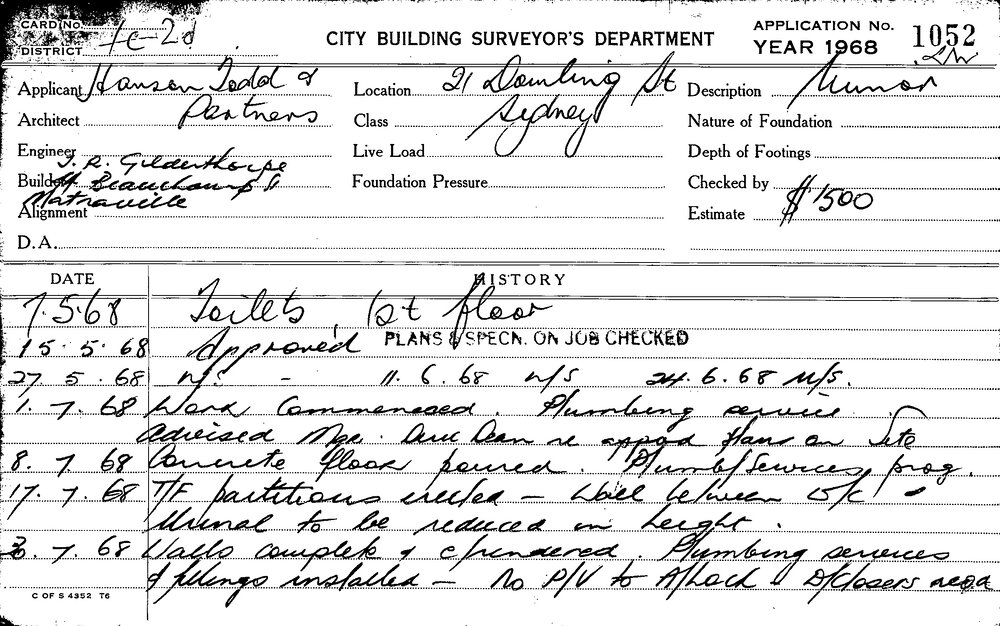 CARD No. 1c-2d
DISTRICT
CITY BUILDING SURVEYOR'S DEPARTMENT
APPLICATION No. 1052
YEAR 1968
Applicant Hanson Todd &
Architect Partners
Engineer
J. R. Gilderthorpe
Builder Beauchamp
Matraville
Alignment
D.A.
Location 21 Dowling St
Class Sydney
Live Load
Foundation Pressure
Description Minor
Nature of Foundation
Depth of Footings
Checked by
Estimate $1500
DATE HISTORY
7.5.68 Toilets, 1st floor
15.5.68 Approved PLANS & SPECN. ON JOB CHECKED
27.5.68 N/S - 11.6.68 N/S 24.6.68 N/S.
1.7.68 Work Commenced. Plumbing service
advised Mgr. Dean re appd plans on Site
8.7.68 Concrete floor poured. Plumb/Services prog.
17.7.68 T/F partitions erected - Wall between W/C
Urinal to be reduced in height.
7.68 Walls complete & c/rendered. Plumbing services
& fittings installed - No P/V to A/Lock & D/closers reqd
C OF S 4352 T6